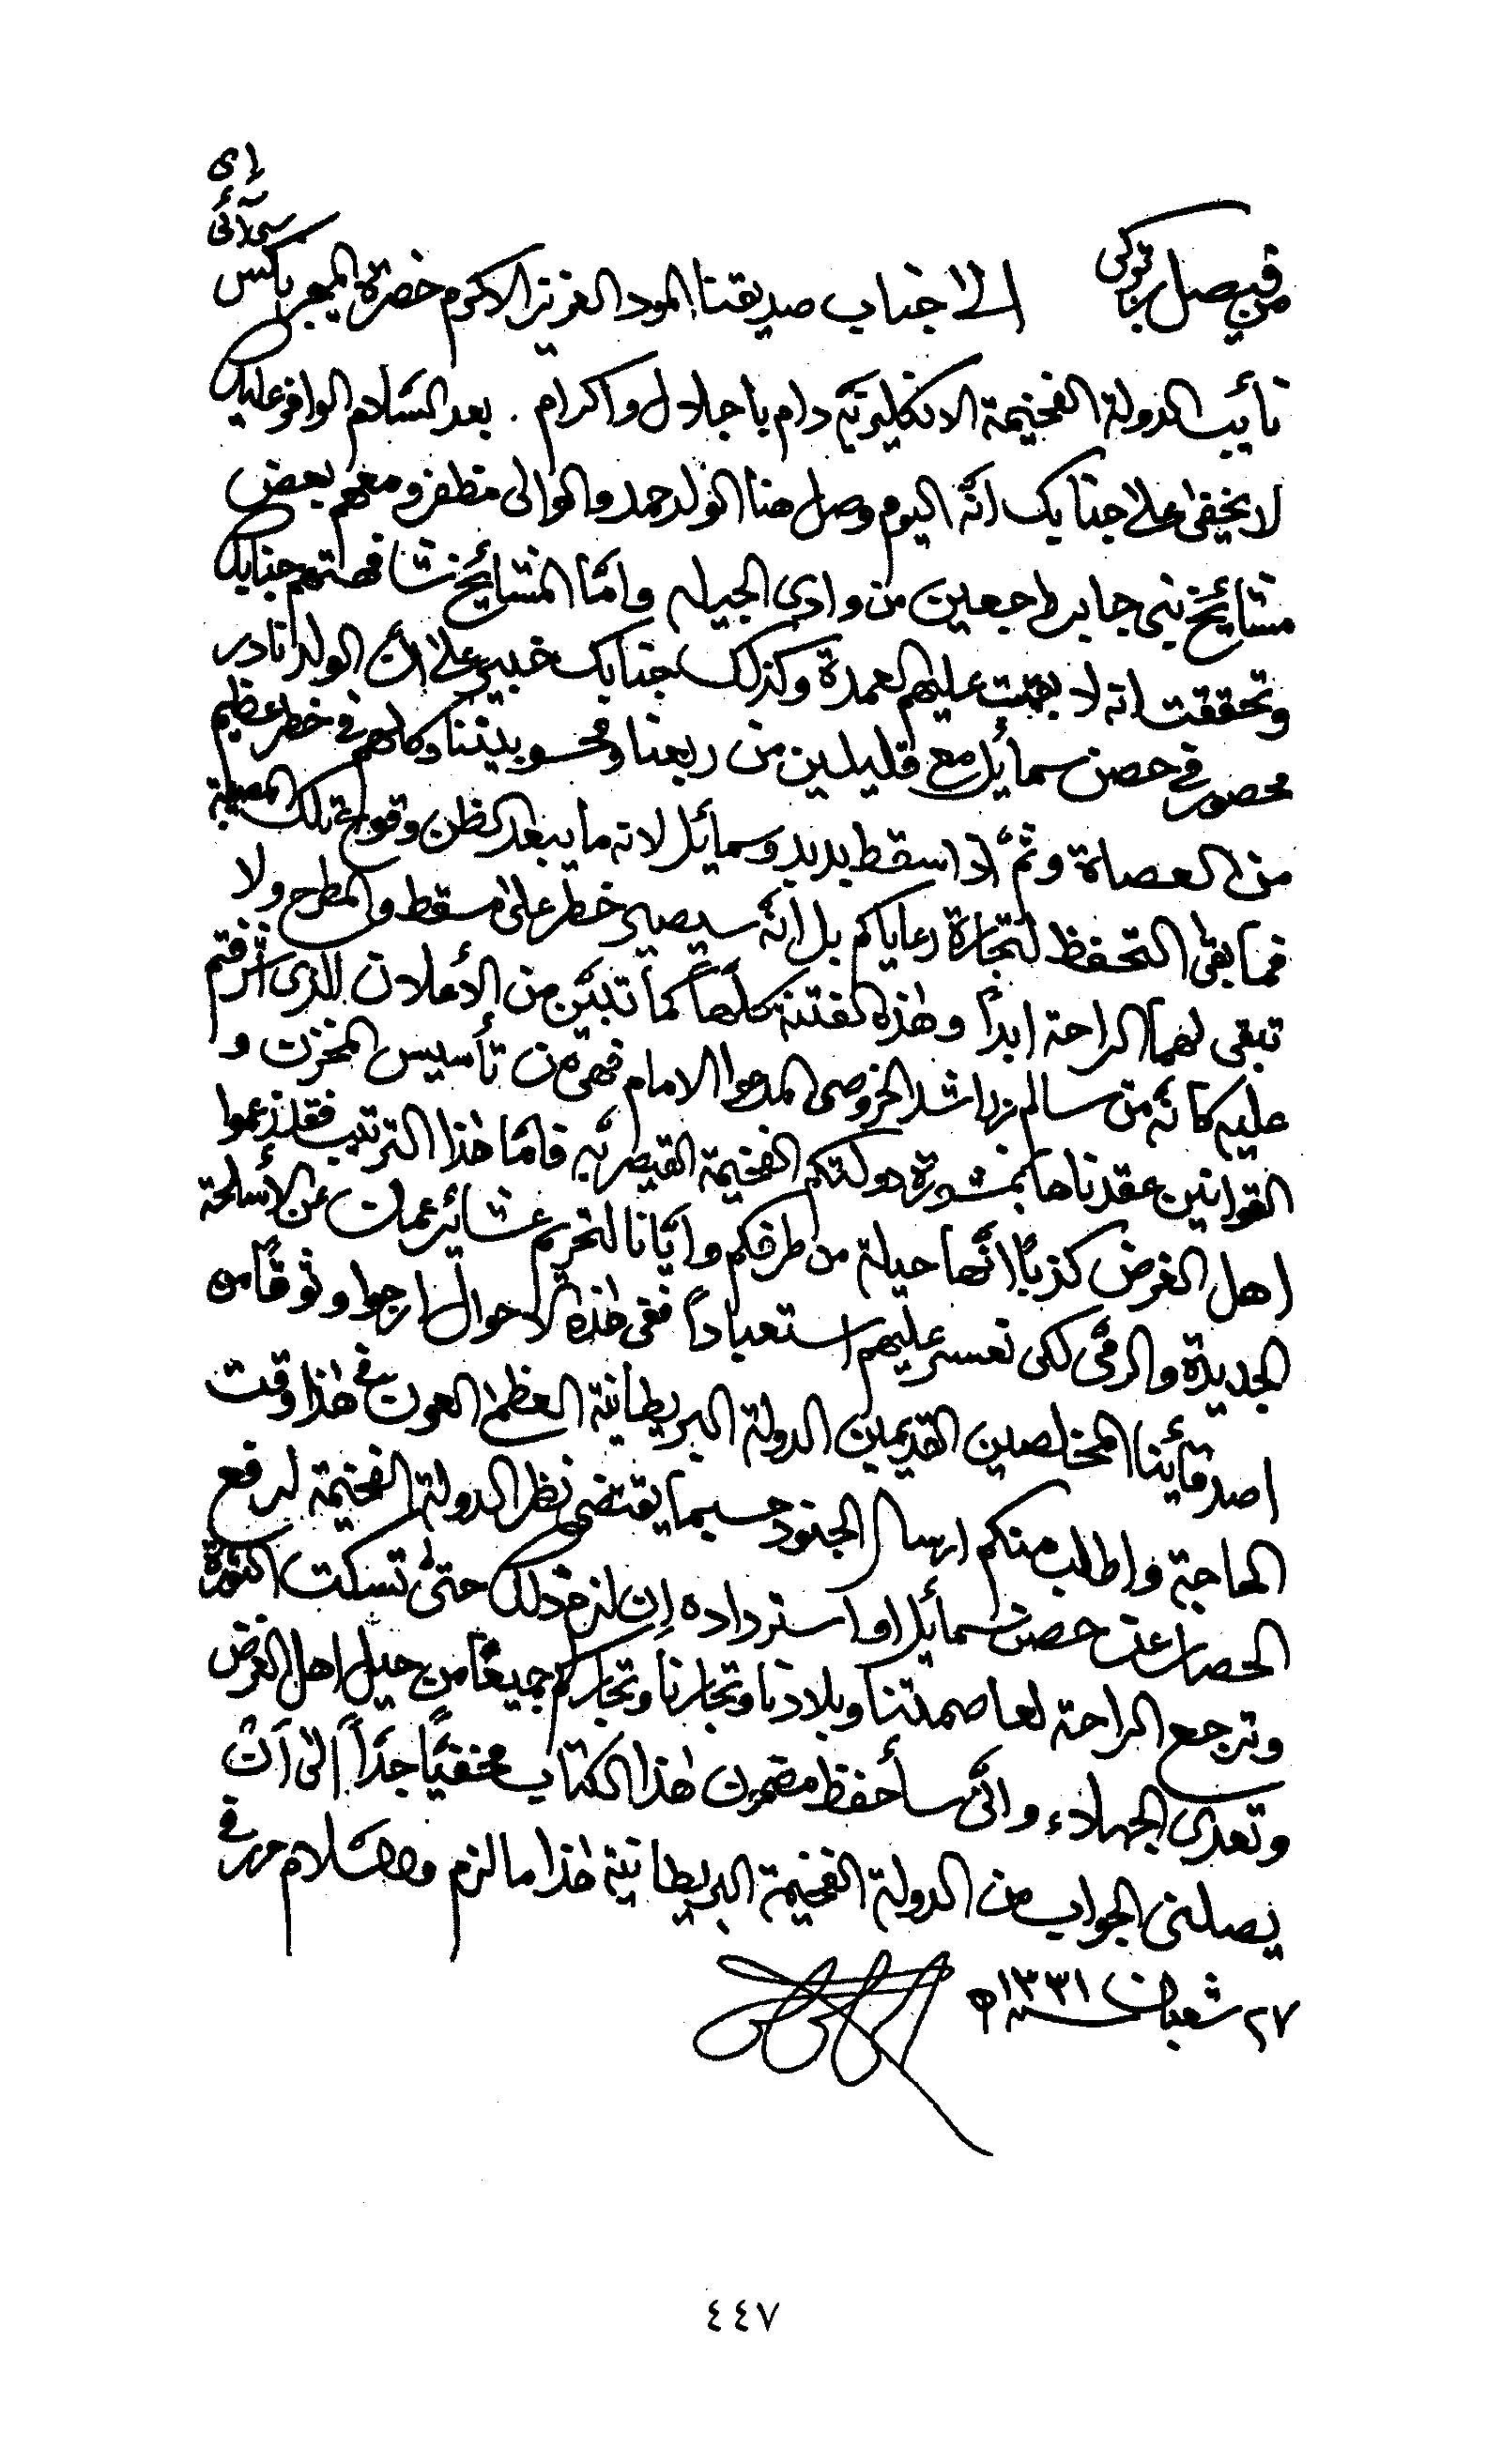 إي
سي آئي
من فيصل بن تركي الى جناب صديقنا المود العزيز الاكرم حضرة الميجر ناكس
نأيب الدولة الفخيمة الانكليزيّة دام باجلال واكرام . بعد السّلام الوافر عليك
لا يخفى على جنابك انّه اليوم وصل هنا الولد حمد والوالي مظفر ومعهم بعض
مشايخ بني جابر راجعين من وادي الجيله وامّا المشايخ شافهتهم جنابك
وتحققت انه لا يعتمت عليهم العمدة وكذلك جنابك خبير على أن الولد نادر
محصور في حصن سمائل مع قليلين من ربعنا ومحسوبيننا وكلهم في خطر عظيم
من العصاة وثمّ اذا سقط بدبد وسمائل لانه ما يبعد الظن وقوع تلك المصيبة
فما بقى التحفظ لتجارة رعاياكم بل انّه سيصير خطر على مسقط والمطرح ولا
تبقى لهما الراحة ابداً وهذه الفتنة كلّها كما تبيّن من الأعلان الذي اشرفتم
عليه كانّه من سالم بن راشد الخروصي المدعوا الامام فهي من تأسيس المخزن و
القوانين عقدناها بمشورة دولتكم الفخيمة القيصريّه فامّا هذا الترتيب فقد زعموا
اهل الغرض كذباً انّها حيلة من طرفكم وايّانا لتحريم عشائر عمان عن الأسلحة
الجديدة والرمي لكي نعسر عليهم استعباداً ففي هذه الاحوال ارجوا وثوقاً من
اصدقأينا المخلصين القديمين الدولة البريطانية العظمى العون في هذا وقت
الحاجة واطلب منكم ارسال الجنود حسبما يقتضي نظر الدولة الفخيمة لرفع
الحصار عن حصن سمائل او استرداده إن لزم ذلك حتّى تسكت الثورة
وترجع الراحة لعاصمتنا وبلادنا وتجارنا وتجاركم جميعاً من حيل اهل الغرض
وتعدي الجهلاء وانّي سأحفظ مضمون هذا الكتاب مخفيّاً جدّاً الى أن
يصلني الجواب من الدولة الفخيمة البريطانية هذا ما لزم والسّلام حرر في
٢٧ شعبان سنه ١٣٣١ه
٤٤٧